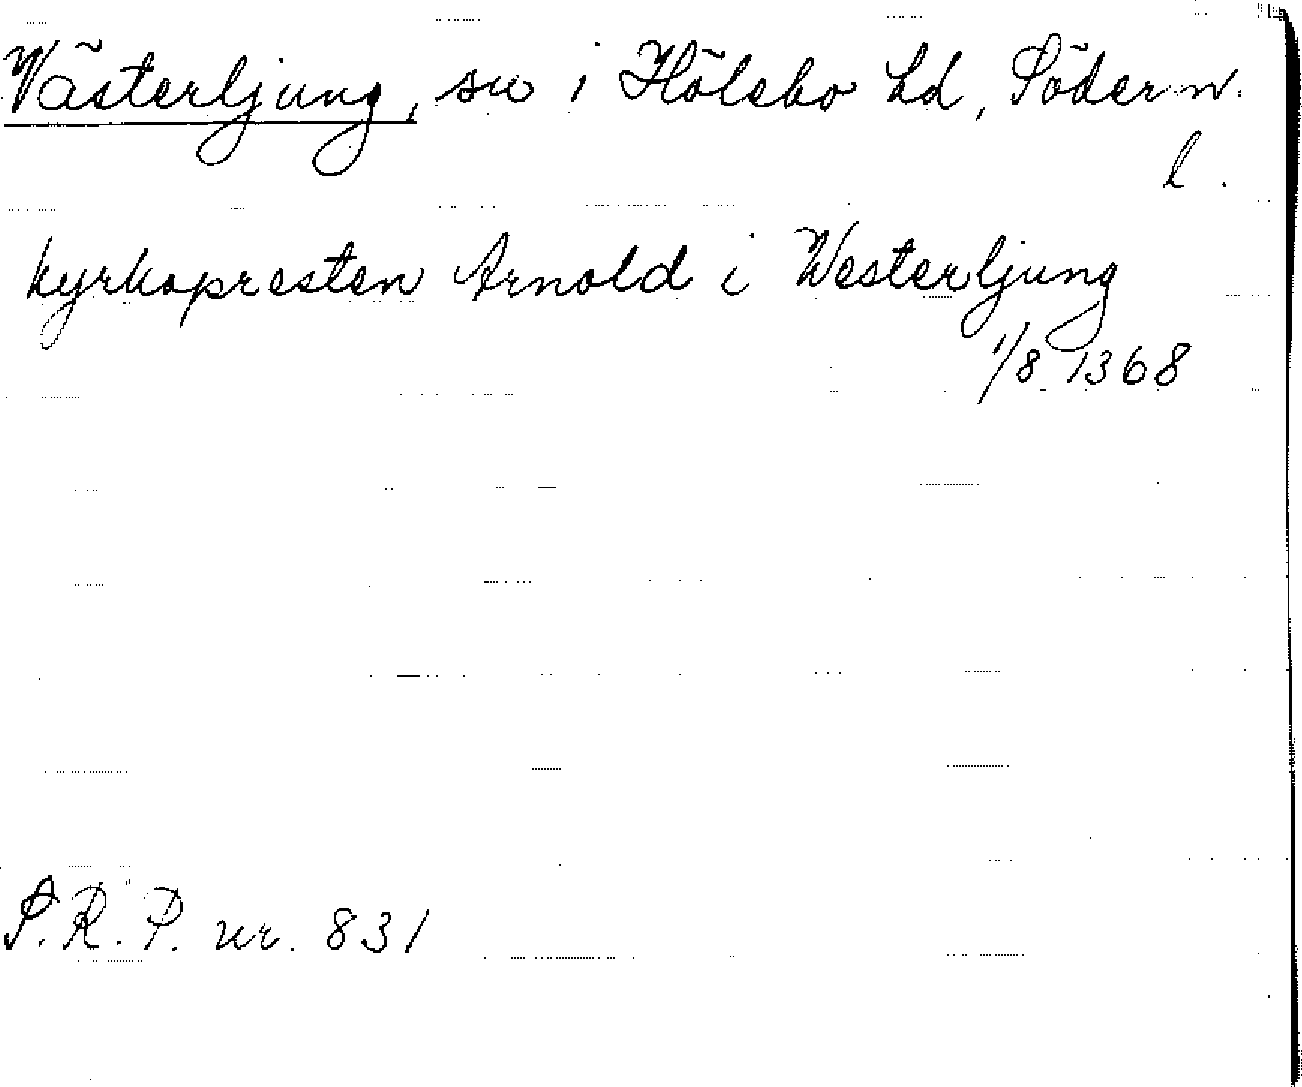 Västerljung, sn i Hölebo hd, Söderm.
l.
kyrkopresten Arnold i Westerljung
1/8 1368
S.R.P. nr. 831